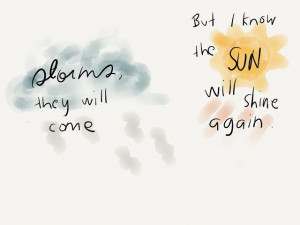 storms,
they will
come
But I know
the SUN
will shine
again.